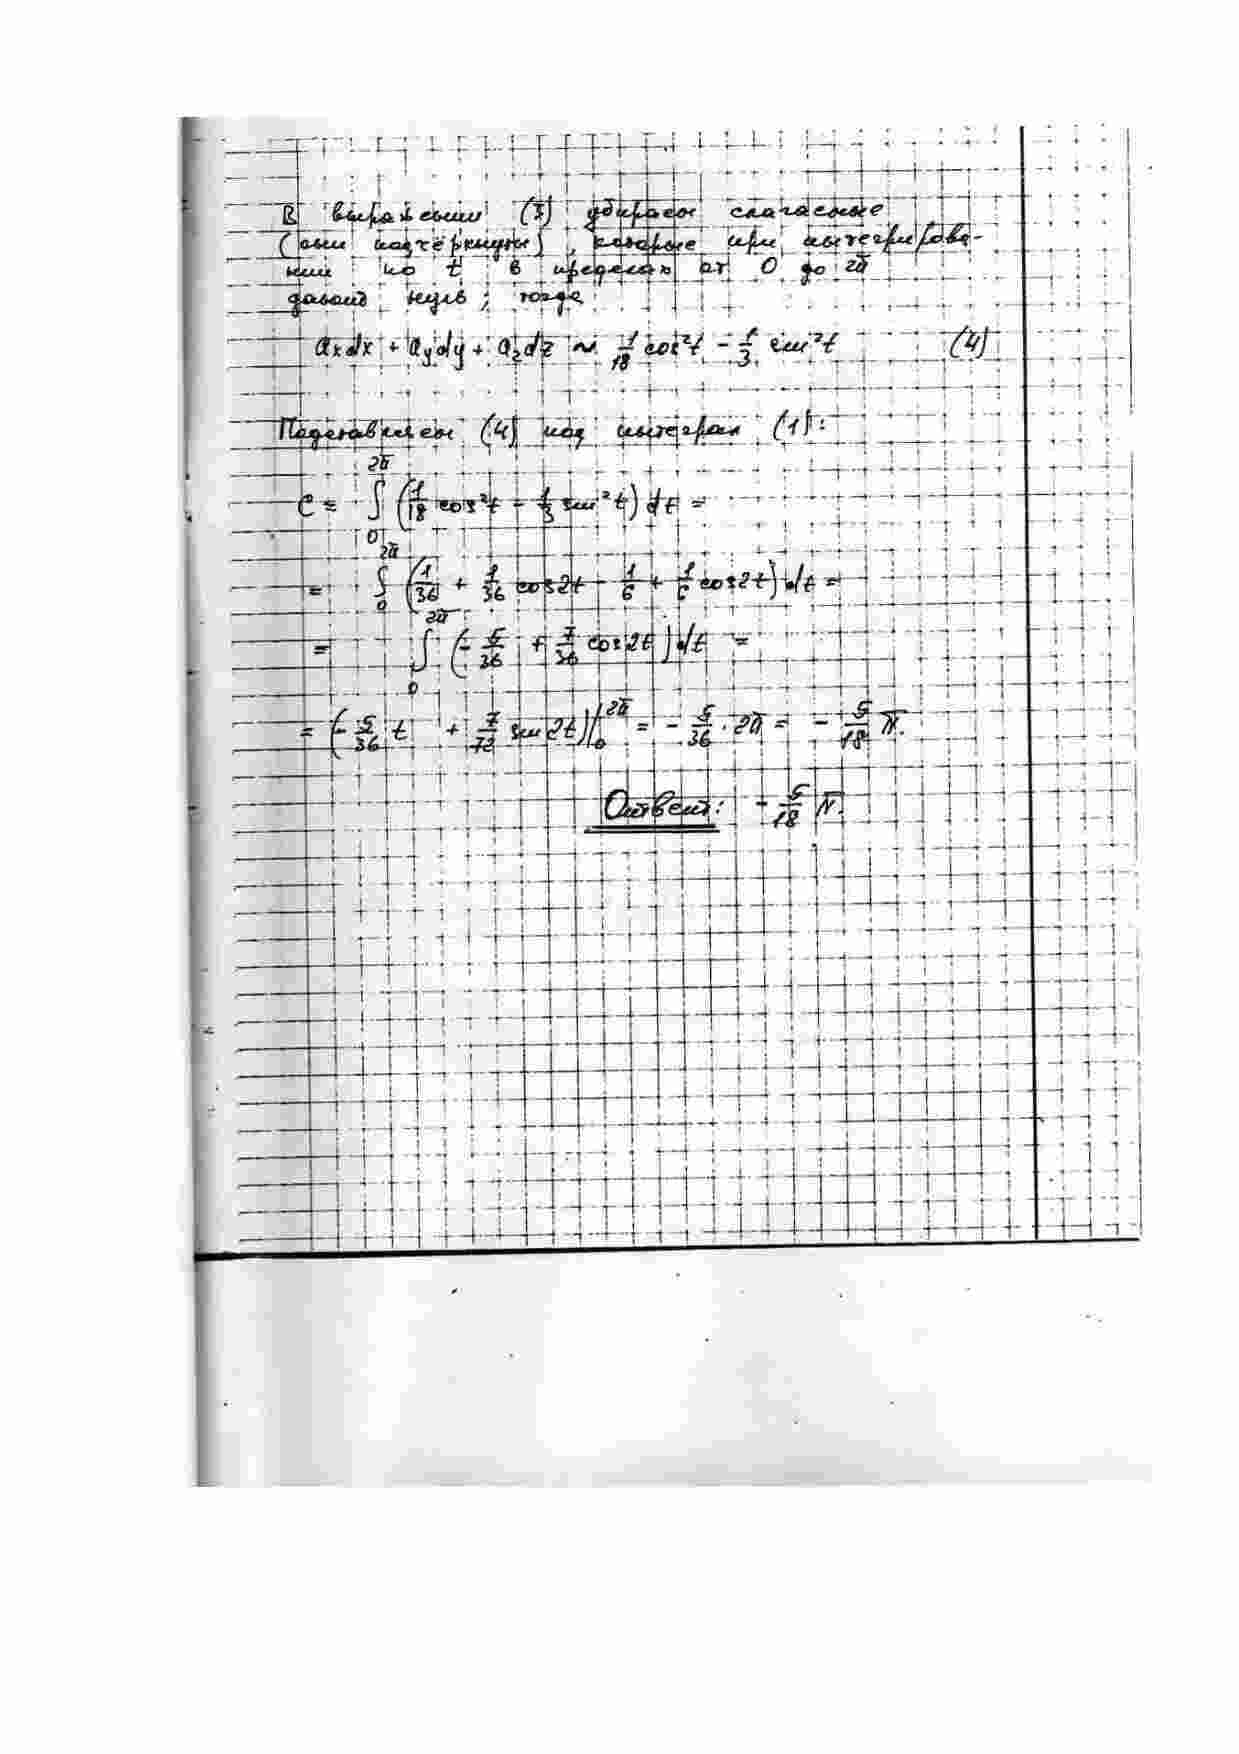 В выражении (3) убираем слагаемые
(они подчёркнуты), которые при интегрирова-
нии по t в пределах от 0 до 2π
давоид нуль; тогда
aₓdx + a_y dy + a_z dz ~ 1/18 cos²t - 1/3 sin²t (4)
Подставляем (4) под интеграл (1):
C = ∫₀^{2π} (1/18 cos²t - 1/3 sin²t) dt =
= ∫₀^{2π} (1/36 + 1/36 cos2t - 1/6 + 1/6 cos2t) dt =
= ∫₀^{2π} (-5/36 + 7/36 cos2t) dt =
= (-5/36 t + 7/72 sin2t)|₀^{2π} = -5/36 · 2π = -5/18 π.
Ответ: -5/18 π.